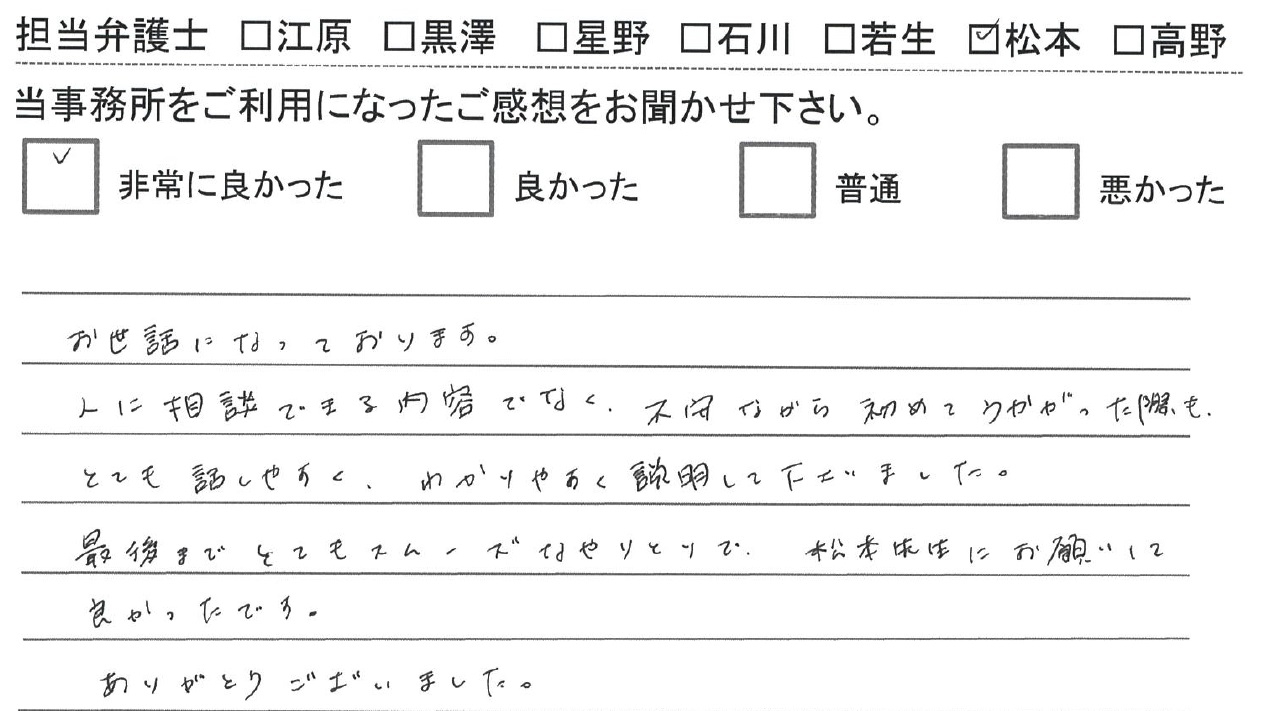 担当弁護士 □江原 □黒澤 □星野 □石川 □若生 ☑松本 □高野
当事務所をご利用になったご感想をお聞かせ下さい。
☑ 非常に良かった □ 良かった □ 普通 □ 悪かった
お世話になっております。
人に相談できる内容でなく、不安ながら初めてうかがった際も、
とても話しやすく、わかりやすく説明して下さいました。
最後までとてもスムーズなやりとりで、松本先生にお願いして
良かったです。
ありがとうございました。